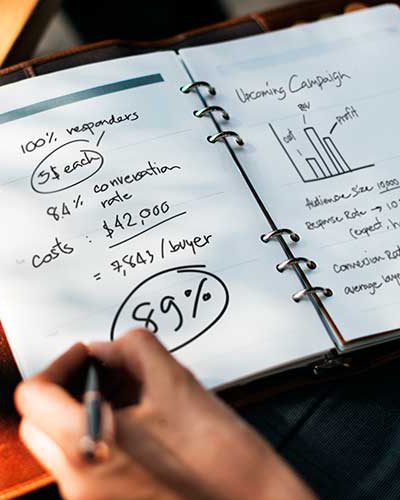 100% responders
5$ each
8.4% conversation
rate
costs : $42,000
= 7,843 /buyer
89%
Upcoming Campaign
cost
Rev
Profit
Audience Size 10,000
Response Rate → 10
(expect, h
Conversion Rat
average buye